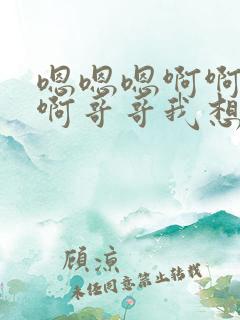 嗯嗯嗯啊啊
啊哥哥我想
顾凉
未经同意禁止转载